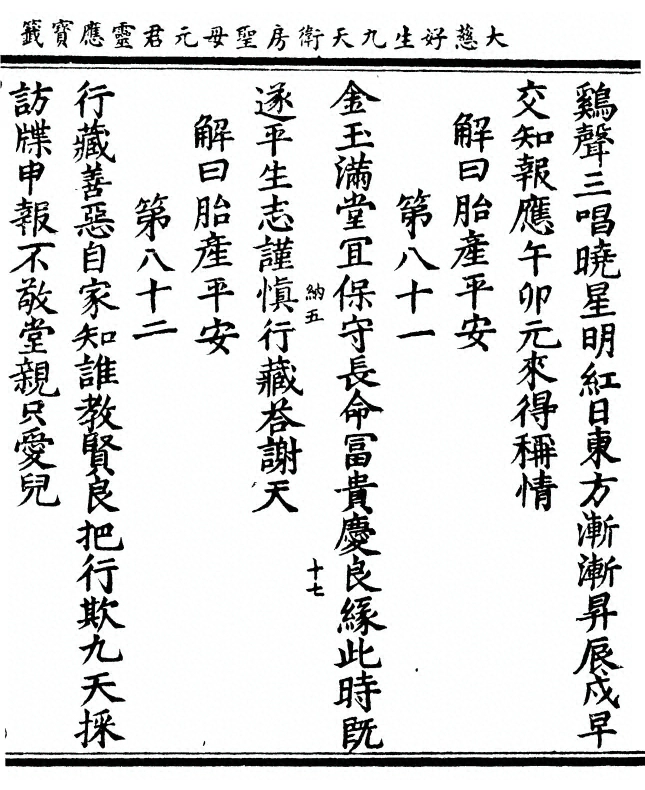 大慈好生九天衛房聖母元君靈應寶籤
鷄聲三唱曉星明紅日東方漸漸昇辰戌早
交知報應午卯元來得稱情
解曰胎產平安
第八十一
金玉滿堂宜保守長命冨貴慶良緣此時旣
納五
十七
遂平生志謹慎行藏荅謝天
解曰胎產平安
第八十二
行藏善惡自家知誰教賢良把行欺九天採
訪牒申報不敬堂親只愛兒